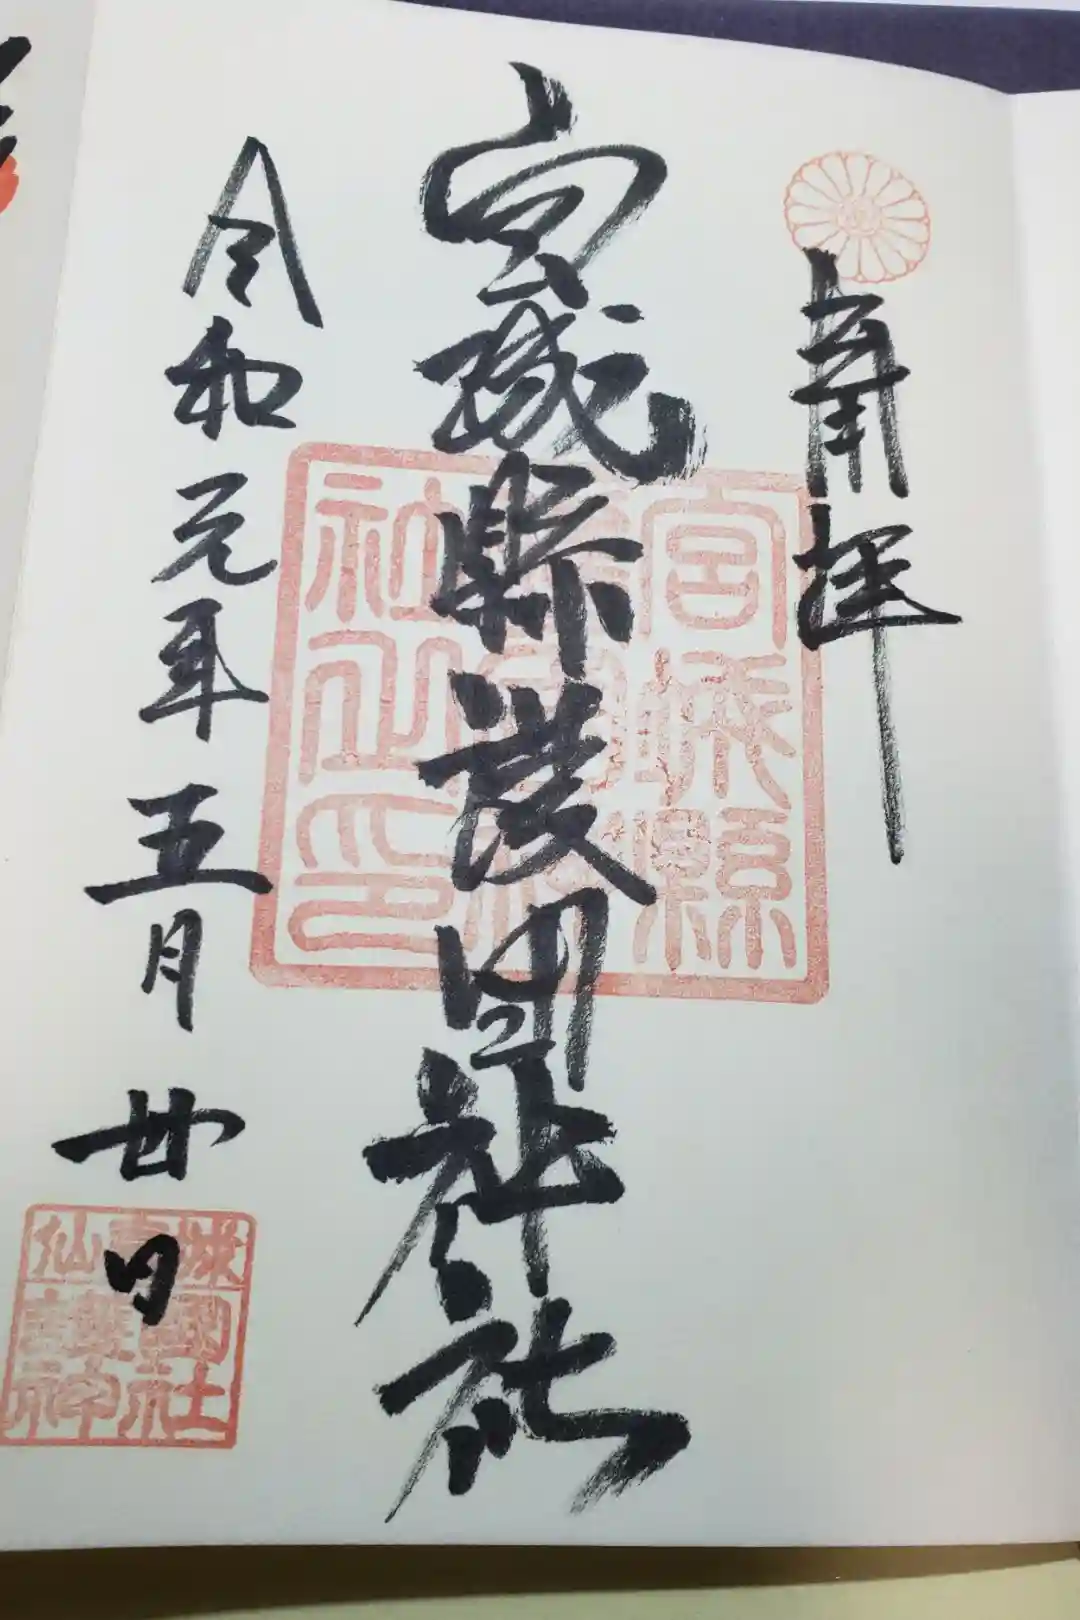 奉拝
宮城縣護国神社
令和元年五月廿日
宮城縣
護國神
社之印
仙臺城
護國神社